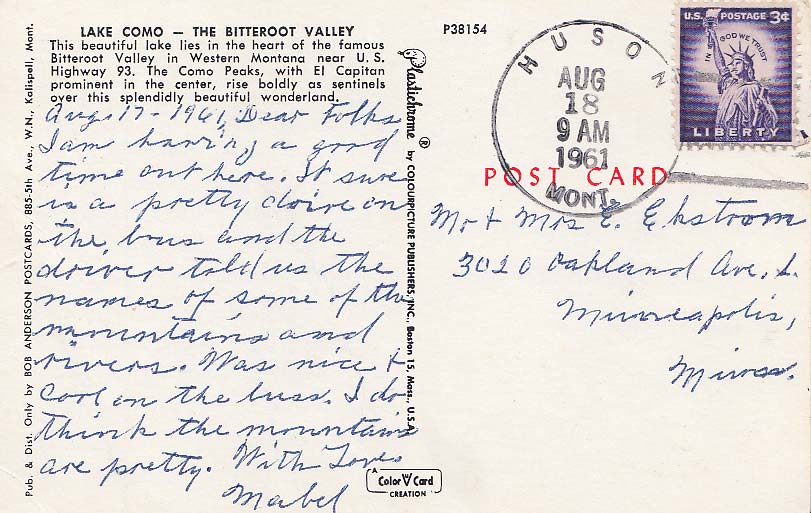 LAKE COMO — THE BITTEROOT VALLEY
This beautiful lake lies in the heart of the famous
Bitteroot Valley in Western Montana near U. S.
Highway 93. The Como Peaks, with El Capitan
prominent in the center, rise boldly as sentinels
over this splendidly beautiful wonderland.
Aug. 17 - 1961, Dear Folks
I am having a good
time out here. It sure
is a pretty drive on
the bus and the
driver told us the
names of some of the
mountains and
rivers. Was nice &
cool on the buss. I do
think the mountains
are pretty. With Love
Mabel
Pub. & Dist. Only by BOB ANDERSON POSTCARDS, 885-5th Ave., W.N., Kalispell, Mont.
Plastichrome ® by COLOURPICTURE PUBLISHERS, INC., Boston 15, Mass., U.S.A.
P38154
HUSON
AUG
18
9 AM
1961
MONT.
U.S. POSTAGE 3¢
IN GOD WE TRUST
LIBERTY
POST CARD
Mr & Mrs E. Ekstrom
3020 Oakland Ave. S.
Minneapolis,
Minn.
A
Color Card
CREATION